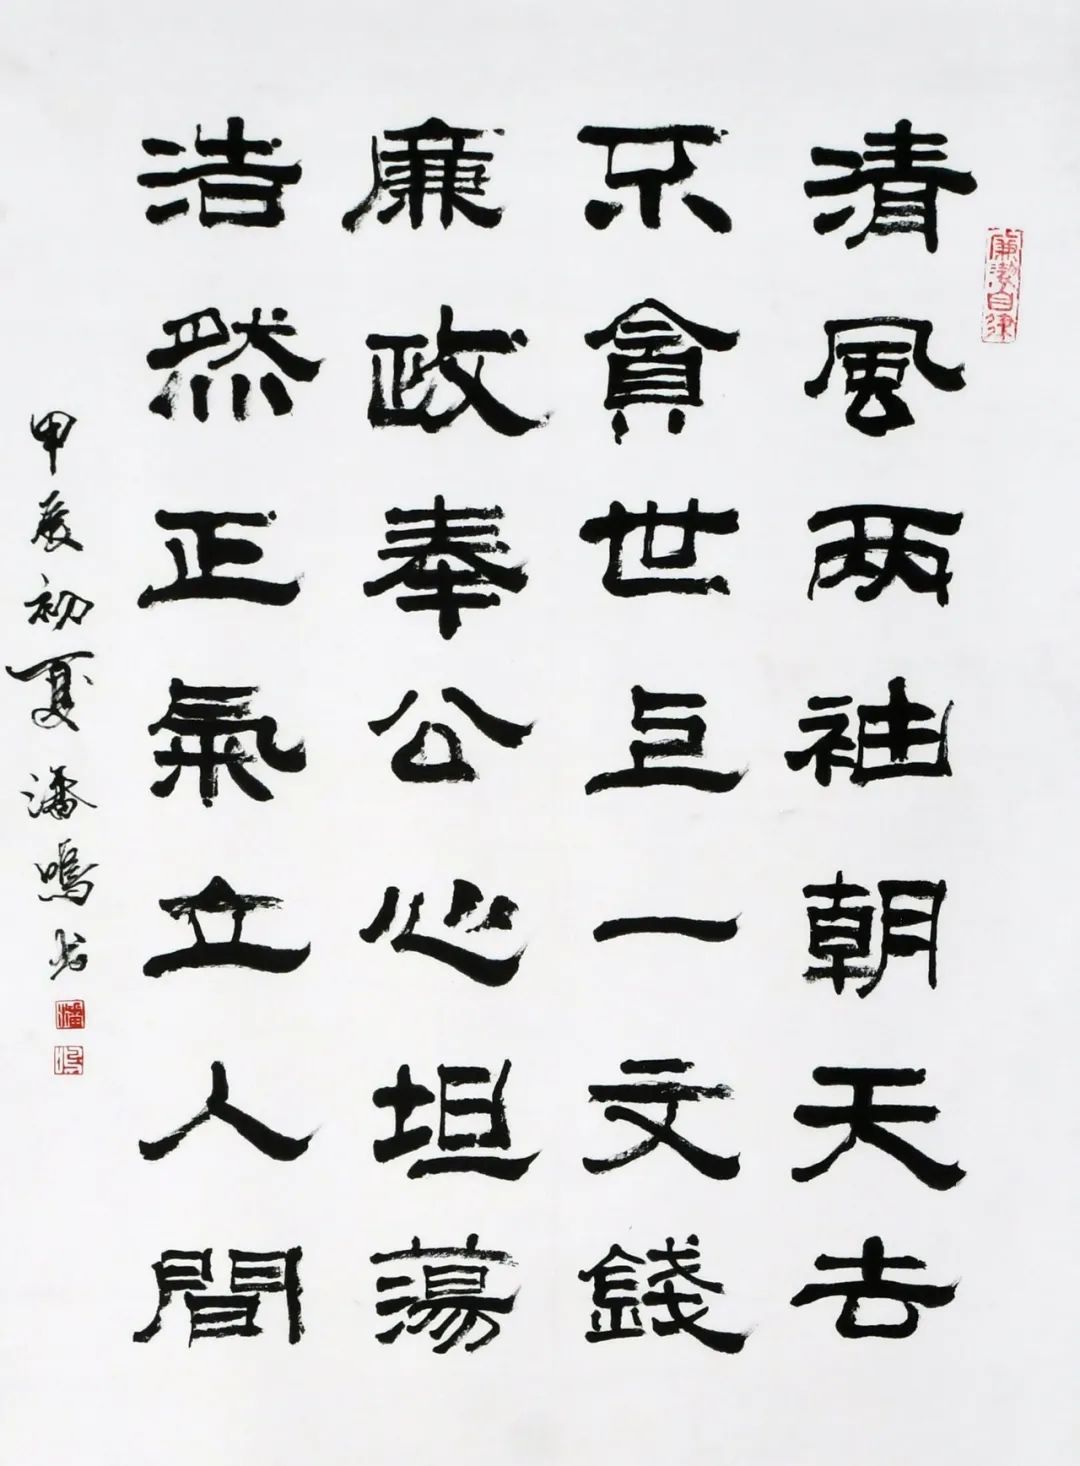 清風两袖朝天去
不貪世上一文錢
廉政奉公心坦蕩
浩然正氣立人間
甲辰初夏潘鳴书
廉潔自律
潘
鳴